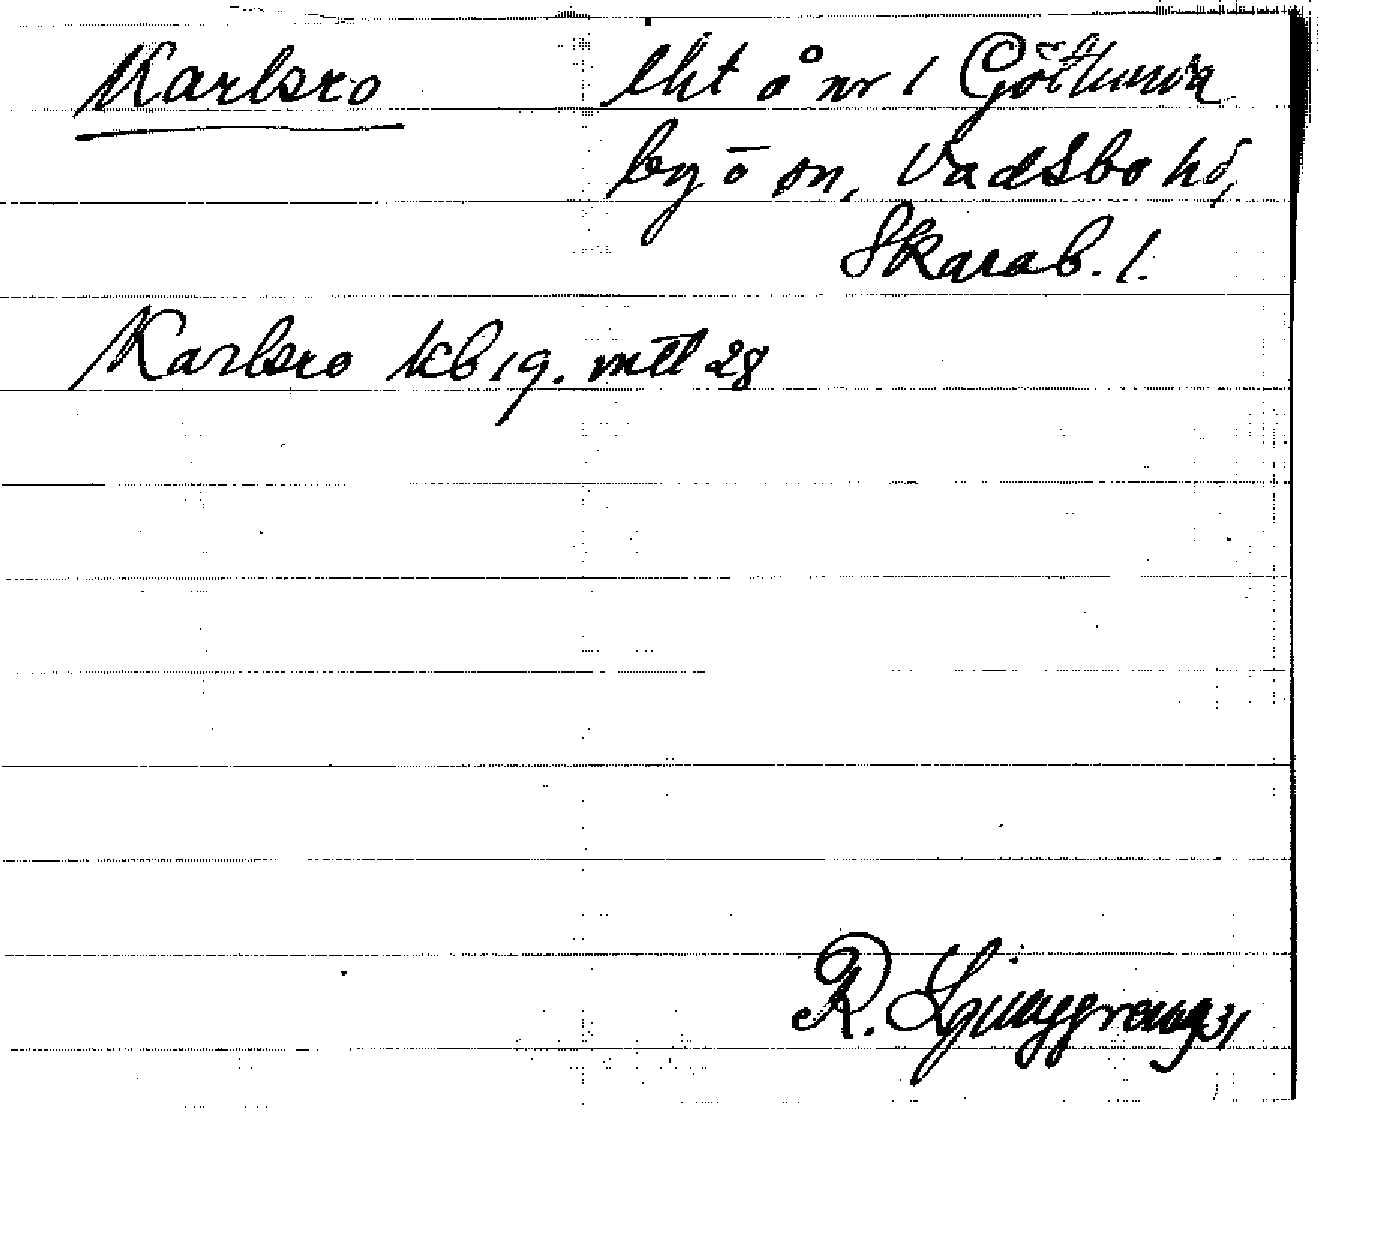 Karlsro lht å nr 1 Götlunda
by o sn, Vadsbo hd,
Skarab. l.
Karlsro kb 19. mtl 28
R. Ljunggren 1931